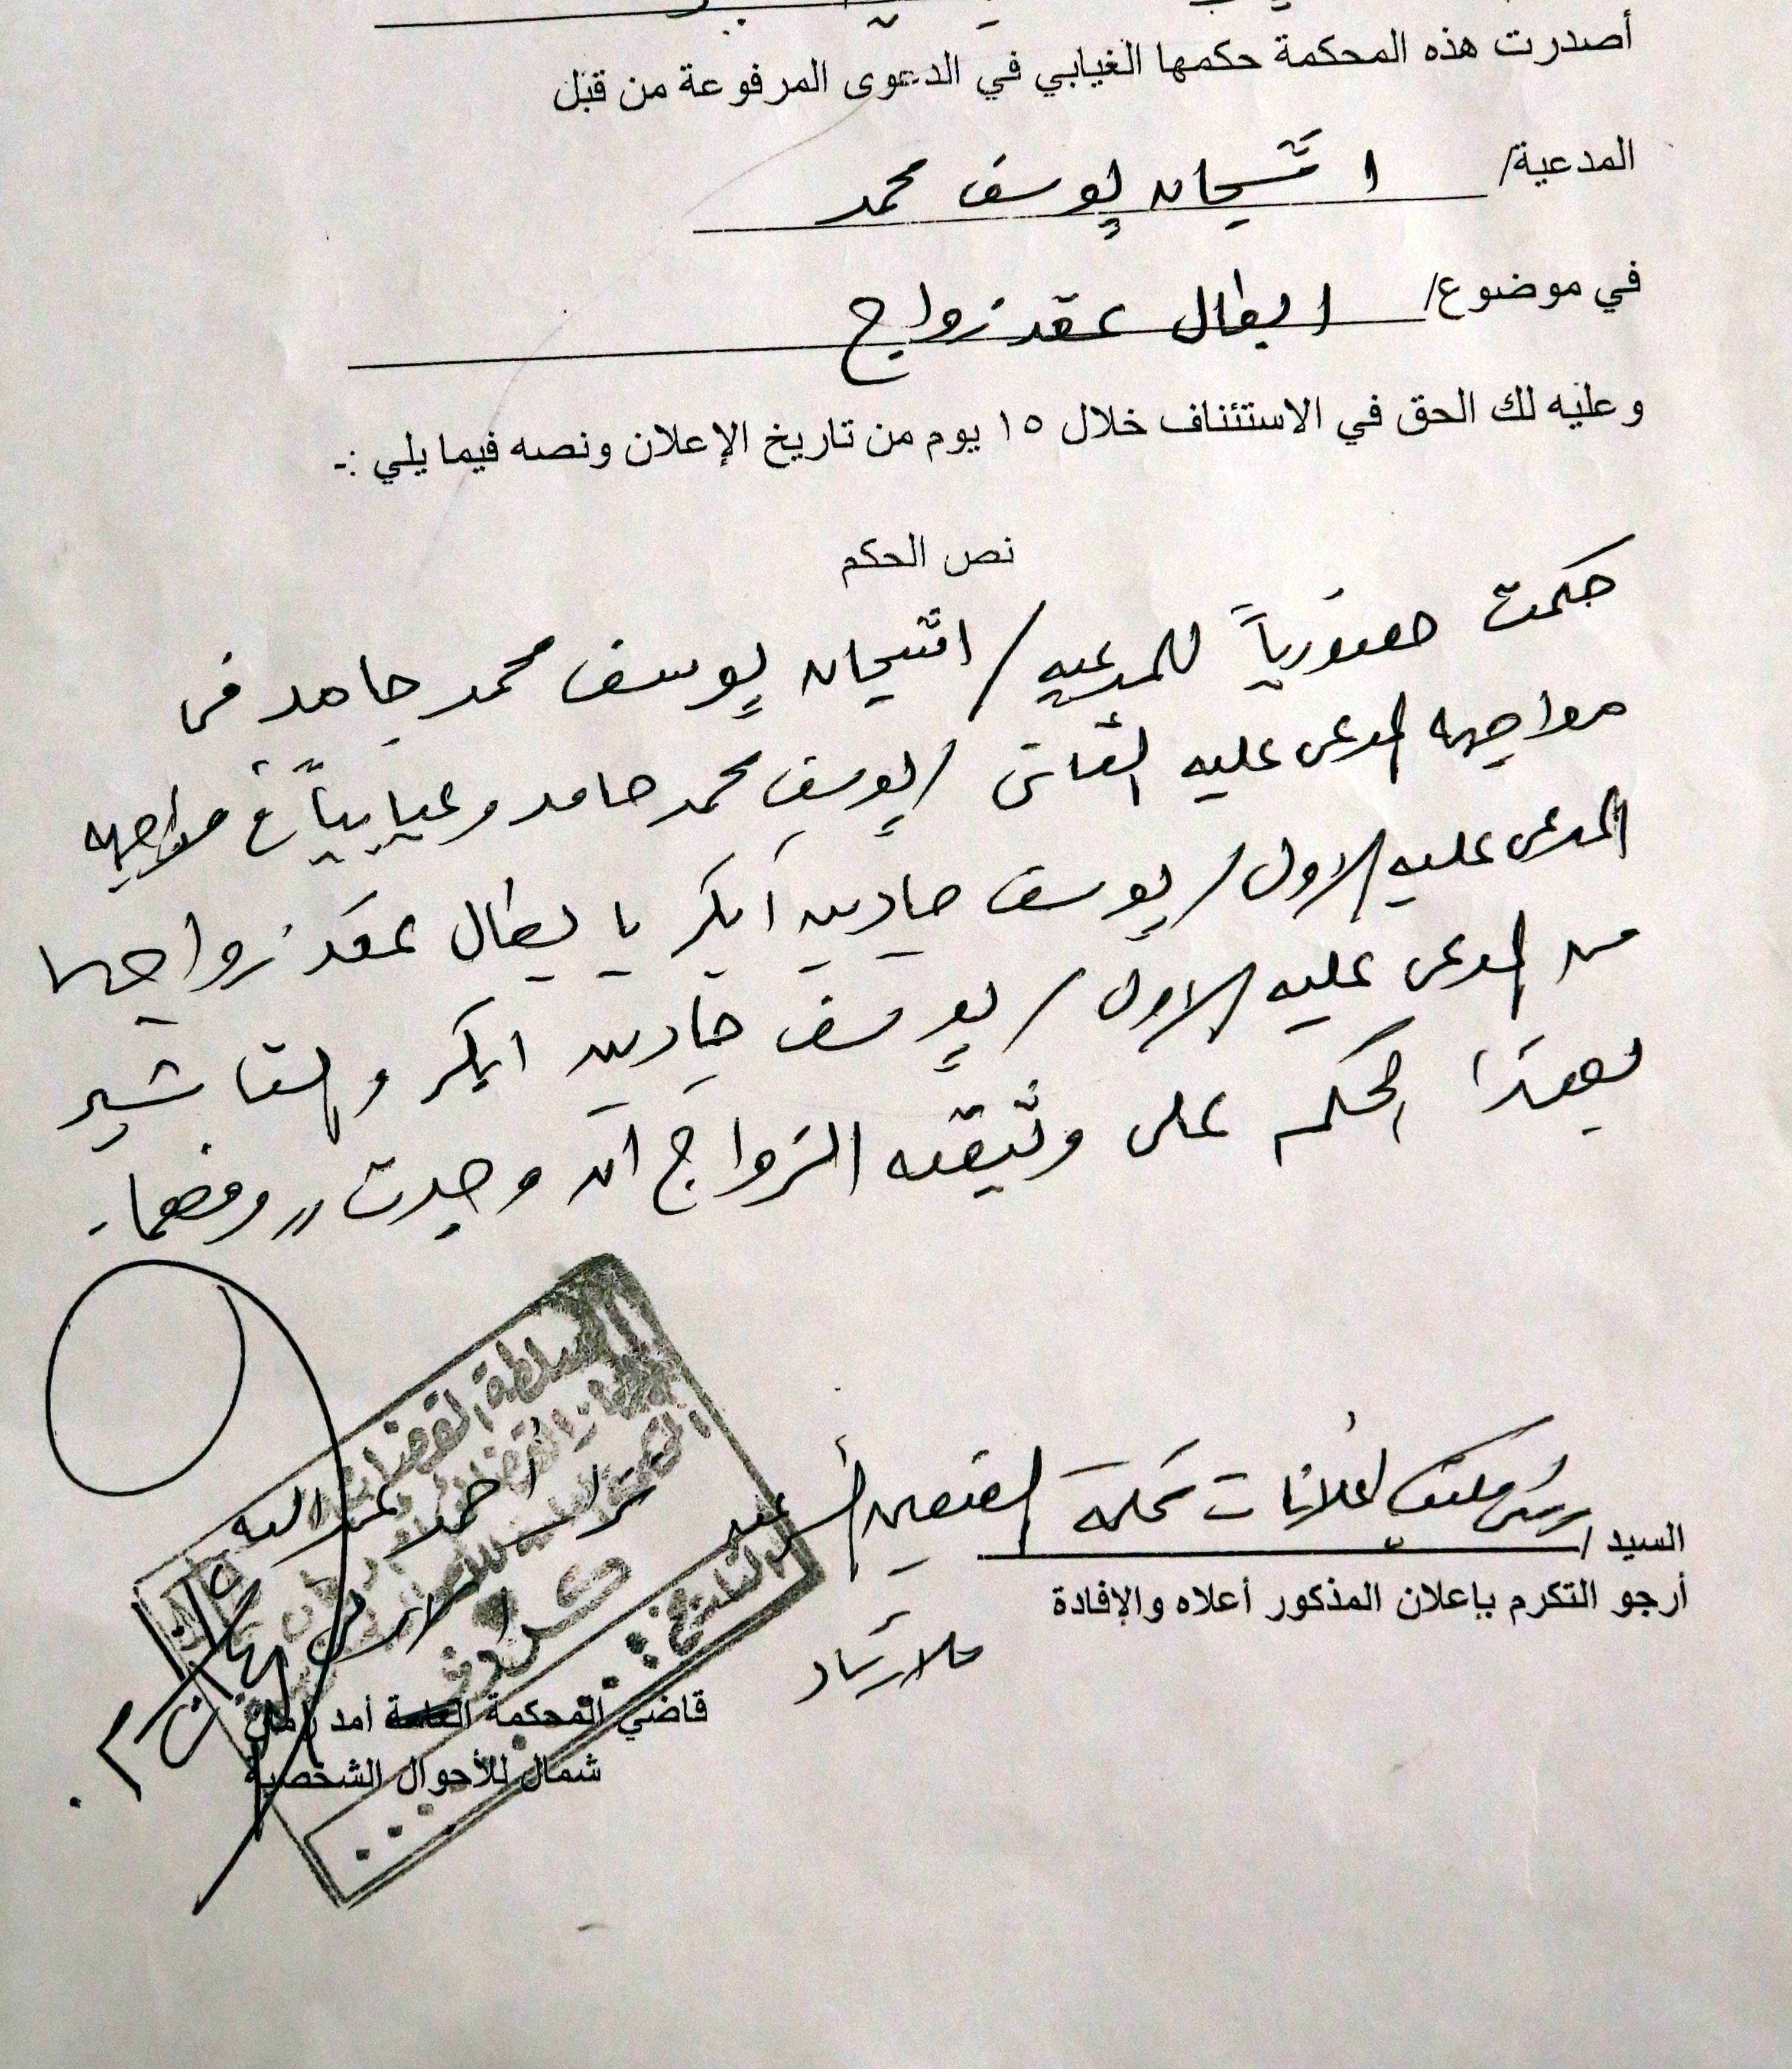 أصدرت هذه المحكمة حكمها الغيابي في الدعوى المرفوعة من قبل
المدعية/ اشيجان يوسف محمد
في موضوع/ ابطال عقد زواج
وعليه لك الحق في الاستئناف خلال ١٥ يوم من تاريخ الإعلان ونصه فيما يلي :-
نص الحكم
حكمت حضورياً للمدعيه / اشيجان يوسف محمد حامد في
مواجهه المدعى عليه الثاني / يوسف محمد حامد وغيابياً في مواجهه
المدعى عليه الاول / يوسف صادريه ابكر با بطال عقد زواجها
من المدعى عليه الاول / يوسف صادريه ابكر والتاشير
بهذا الحكم على وثيقه الزواج ان وجدت ،،
السلطة القضائية
السيد / رئيس مكتب اعلانات محكمة
أرجو التكرم بإعلان المذكور أعلاه والإفادة
احمد عبد الله
التاريخ:
قاضي المحكمة العامة أمدرمان
شمال للأحوال الشخصية